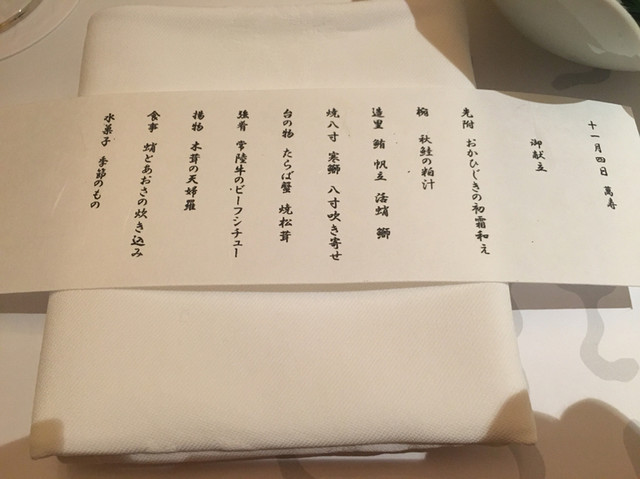 十一月四日 萬寿
御献立
先附 おかひじきの初霜和え
椀 秋鮭の粕汁
造里 鮪 帆立 活蛸 鰤
焼八寸 寒鰤 八寸吹き寄せ
台の物 たらば蟹 焼松茸
強肴 常陸牛のビーフシチュー
揚物 木茸の天婦羅
食事 蛸とあおさの炊き込み
水菓子 季節のもの